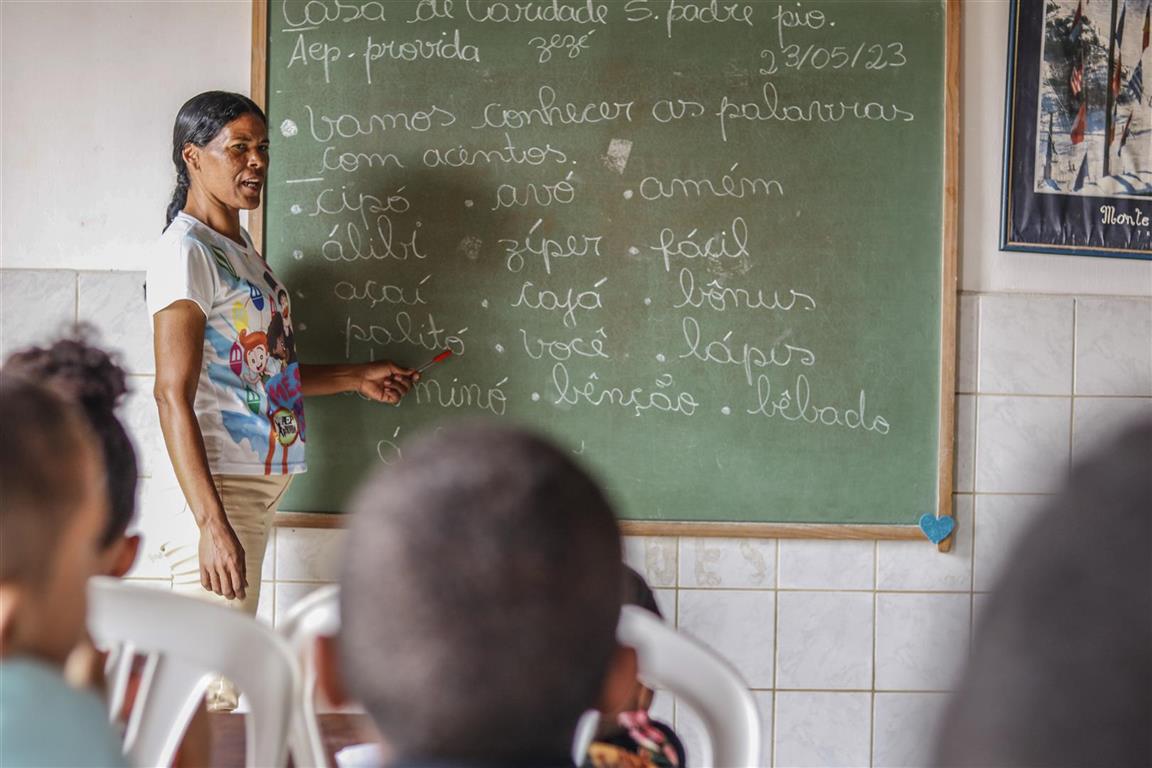 Casa de Caridade S. padre pio.
Aep. provida zezé 23/05/23
. Vamos conhecer as palavras
com acentos.
. cipó . avó . amém
. álibi . zíper . fácil
açaí . cajá . bônus
palitó . você . lápis
minó . bênção . bêbado
Monte